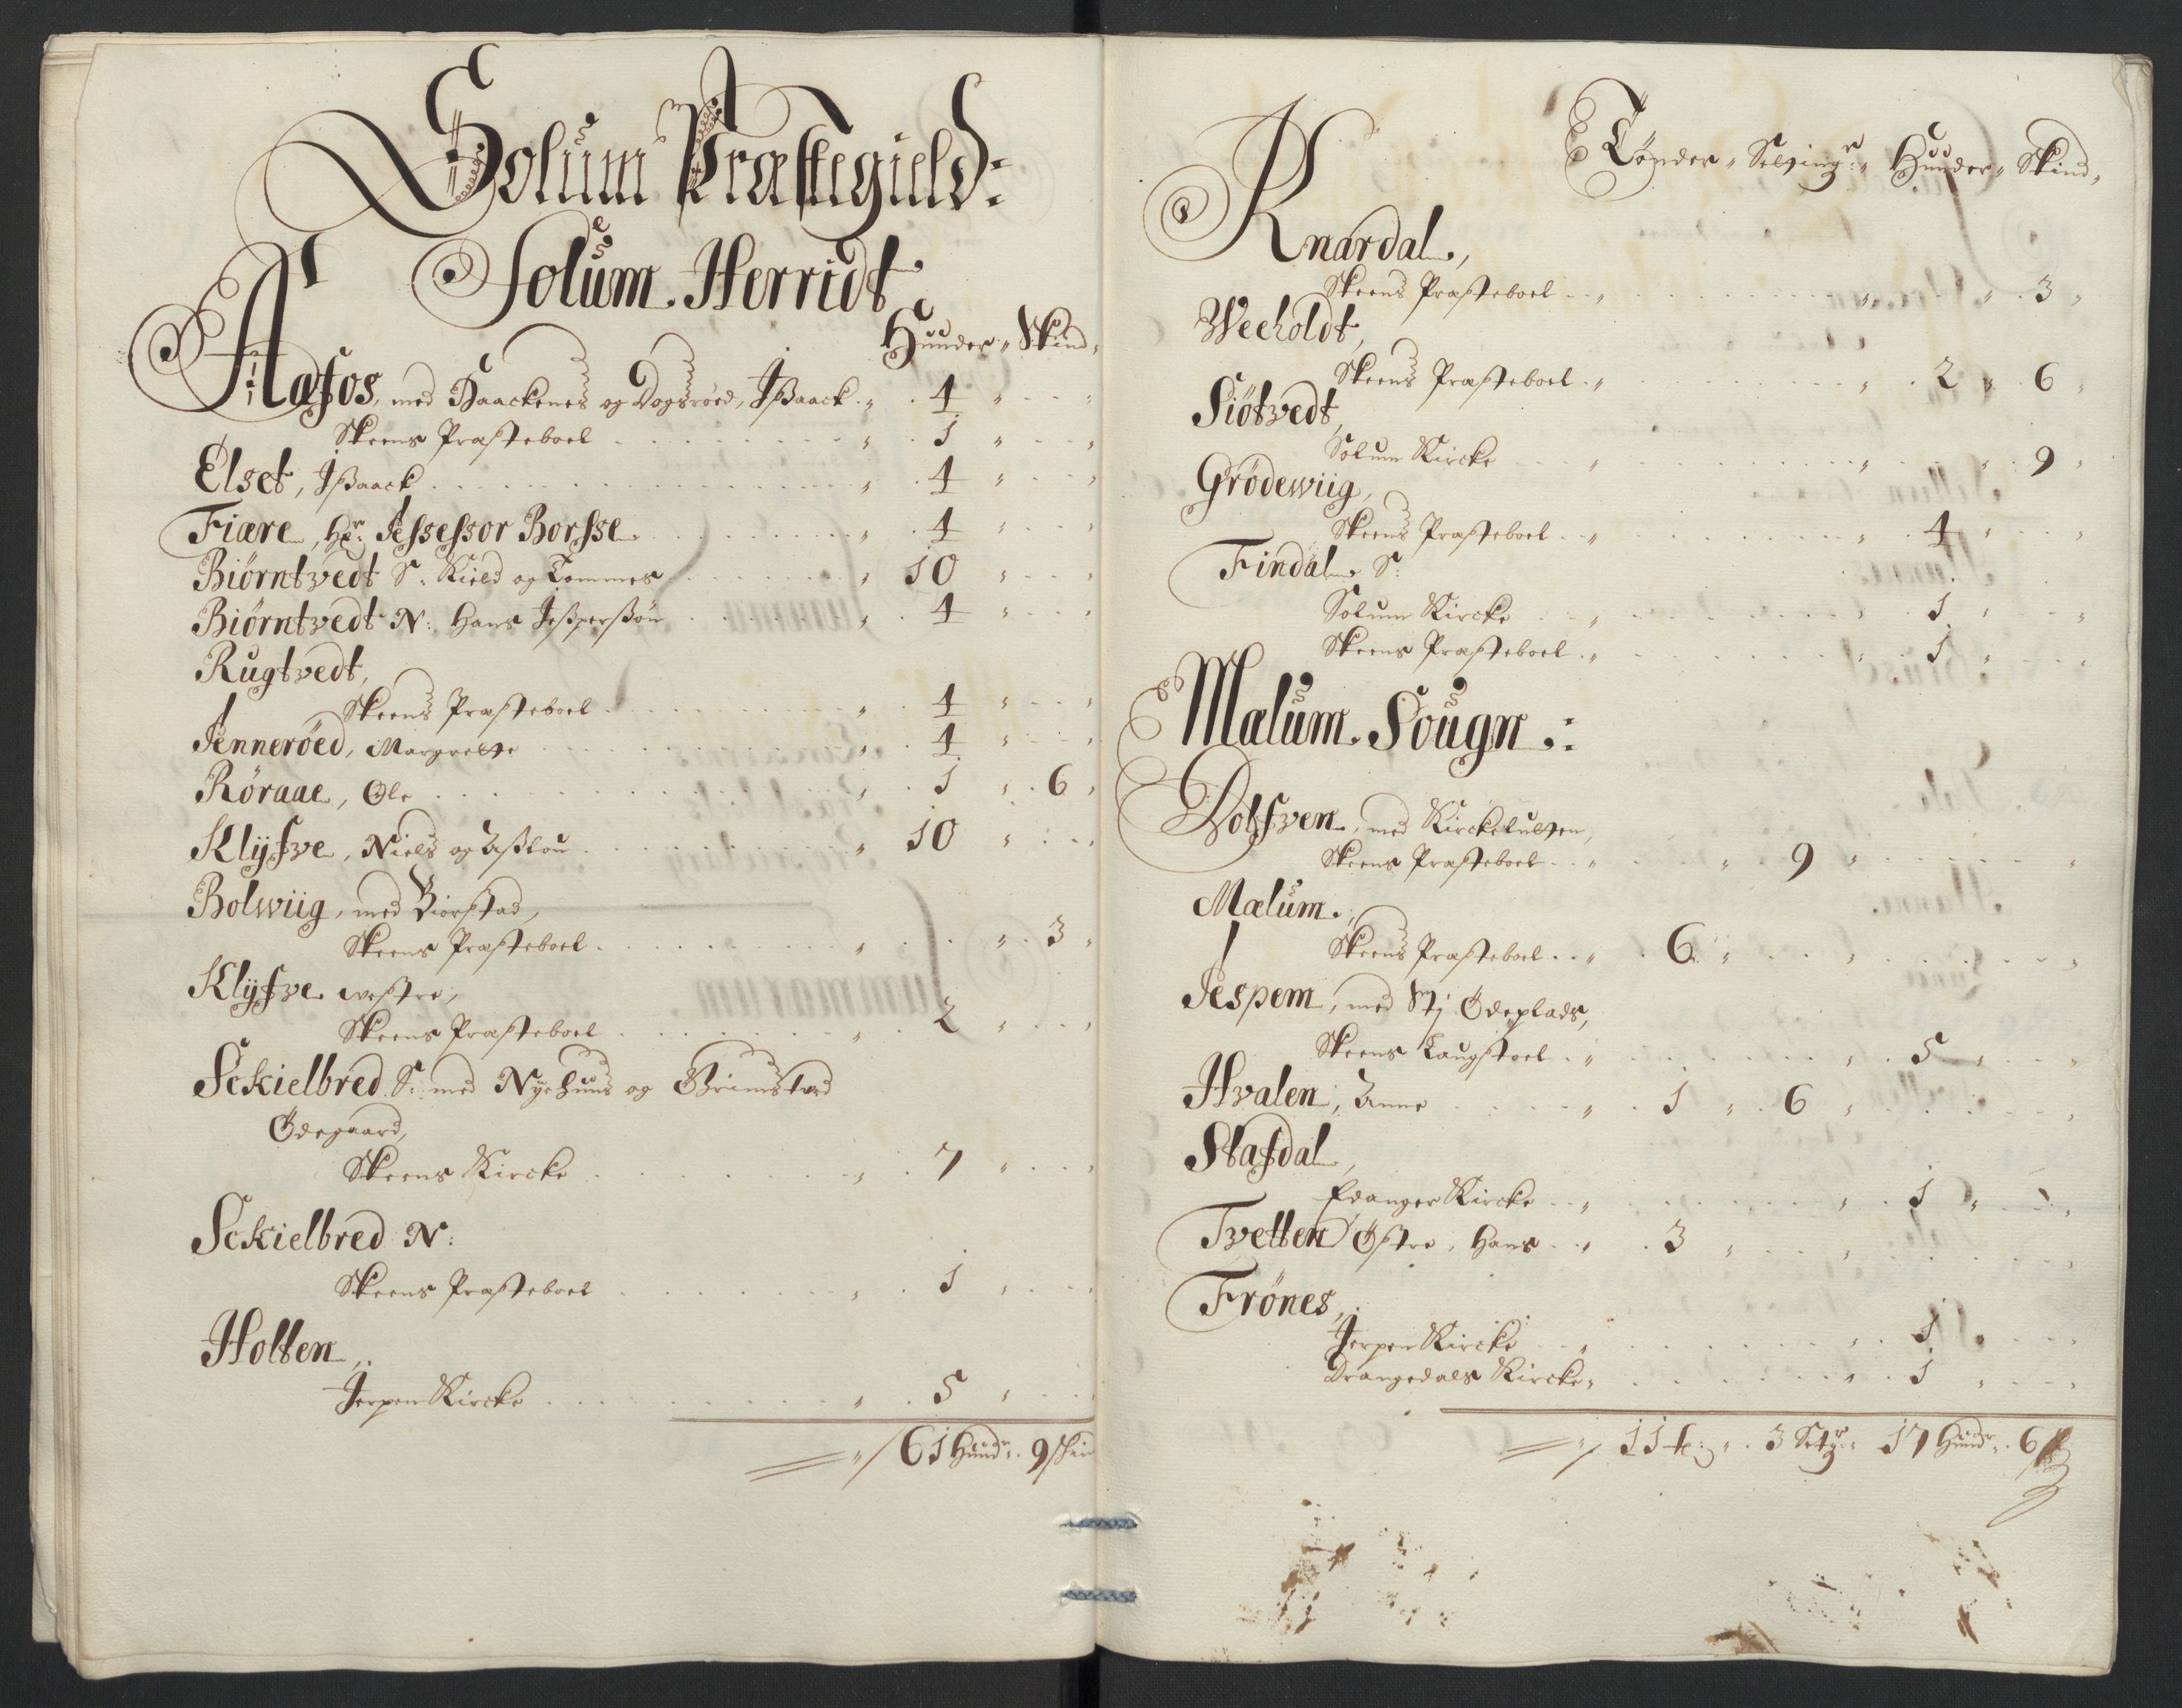 Solum Præstegield:
Solum Herridt
Huuder " Skind "
Aafos, med Haackenes og Dogsröed, Jßaack " . 4 " - - "
Skeens Præsteboel . . . " . 1 " . . "
Elset, Jßaack . . . " . 4 " . . "
Fiære, Hr: Assessor Borsse . . . " . 4 " . . "
Biörntvedt S: Kield og Tommes . . . " 10 " . . "
Biörntvedt N: Hans Jeßperßön . . . " . 4 " . . "
Rugtvedt,
Skeens Præsteboel . . . " . 4 " . . "
Jenneröed, Margrethe . . . " . 4 " . . "
Röraae, Ole . . . " . 1 " . 6 "
Klÿfve, Niels og Aßlou . . . " 10 " . . "
Bolwiig, med Biorstad,
Skeens Præsteboel . . . " . . " . 3 "
Klÿfve westre,
Skeens Præsteboel . . . " . 2 " . . "
Sckielbred S: med Nyehuus og Grimstved
Ödegaard,
Skeens Kircke . . . " . 7 " . . "
Sckielbred N:
Skeens Præsteboel . . . " . 1 " . . "
Holten,
Jerpen Kircke . . . " . 5 " . . "
" / 61 Hund: . 9 skin
Tönder " Setting: " Huuder " Skind "
Knardal,
Skeens Præsteboel . . " . . . " . . " . 3 "
Weeholdt,
Skeens Præsteboel . " . . . " . 2 " . 6 "
Siötvedt,
Solum Kircke . . " . . . " . . " . 9 "
Grödewiig,
Skeens Præsteboel . . " . . . " . 4 " . . "
Findal S:
Solum Kircke . . " . . . " . 1 " . . "
Skeens Præsteboel . " . . . " . 1 " . . "
Mælum Sougn :
Dolfven, med Kirckelulten,
Skeens Præsteboel . . " . . " . 9 " . . . "
Mælum,
Skeens Præsteboel . . " . 6 " . . " . . . "
Jespem, med Ödeplads,
Skeens Laugstoel . " . . . " . 5 " . . "
Hvalen, Anne . . . " . 1 " . 6 " . . . "
Stafdal,
Edanger Kircke . . " . . . " . 1 " . . "
Tvetten Östre, Hans . . " . 3 " . . " . . . "
Frönes,
Jerpen Kircke . . " . . . " . 1 " . . "
Drangedals Kircke " . . . " . 1 " . . "
" / 11 t: " . 3 Set: " 17 Hund: . 6